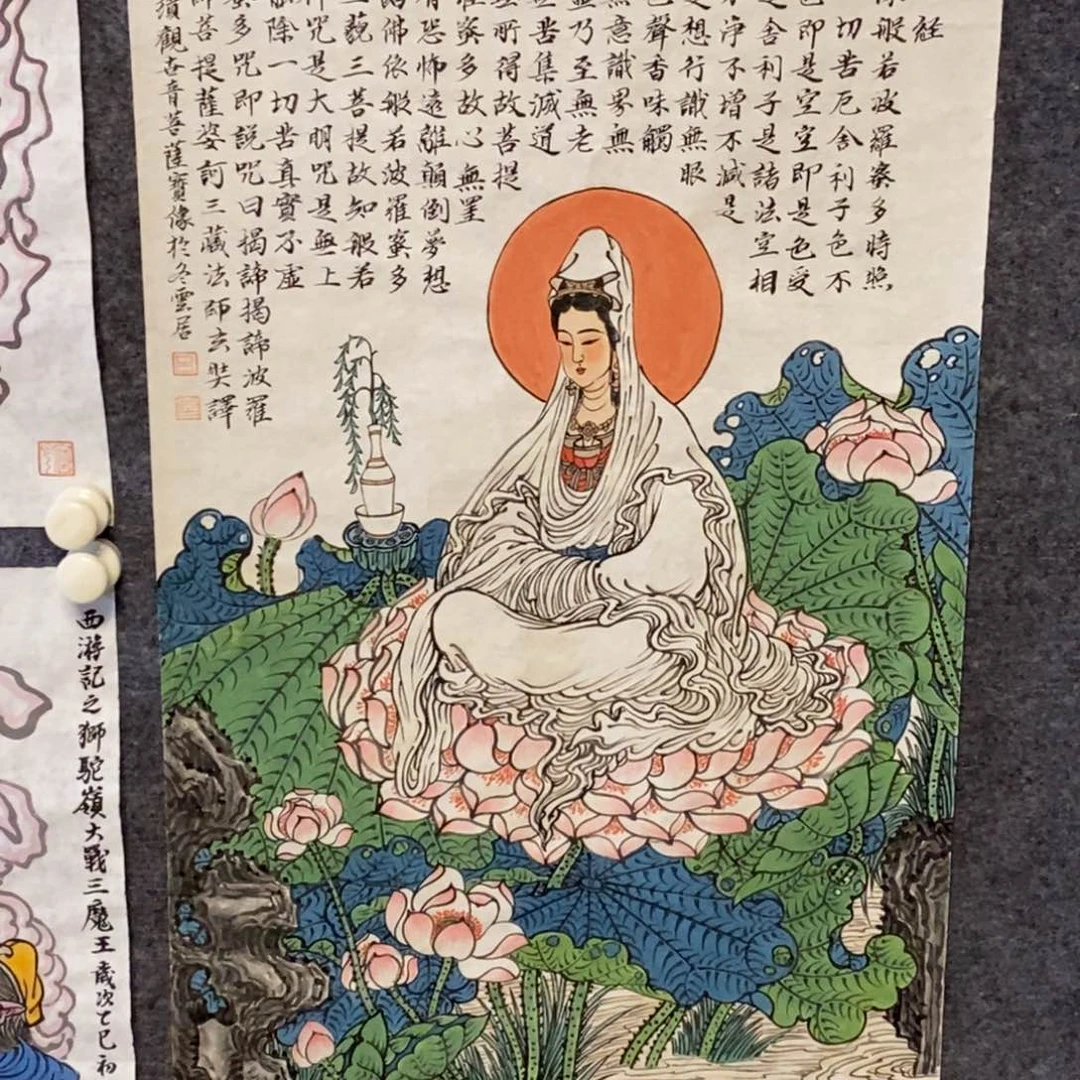 經
般若波羅蜜多時照
切苦厄舍利子色不
即是空空即是色受
舍利子是諸法空相
淨不增不滅是
想行識無眼
聲香味觸
意識界無
乃至無老
苦集滅道
所得故菩提
蜜多故心無罣
恐怖遠離顛倒夢想
佛依般若波羅蜜多
藐三菩提故知般若
咒是大明咒是無上
除一切苦真實不虛
多咒即說咒曰揭諦揭諦波羅
菩提薩婆訶三藏法師玄奘譯
觀世音菩薩寶像於冬雲居
西游記之獅駝嶺大戰三魔王歲次乙巳初